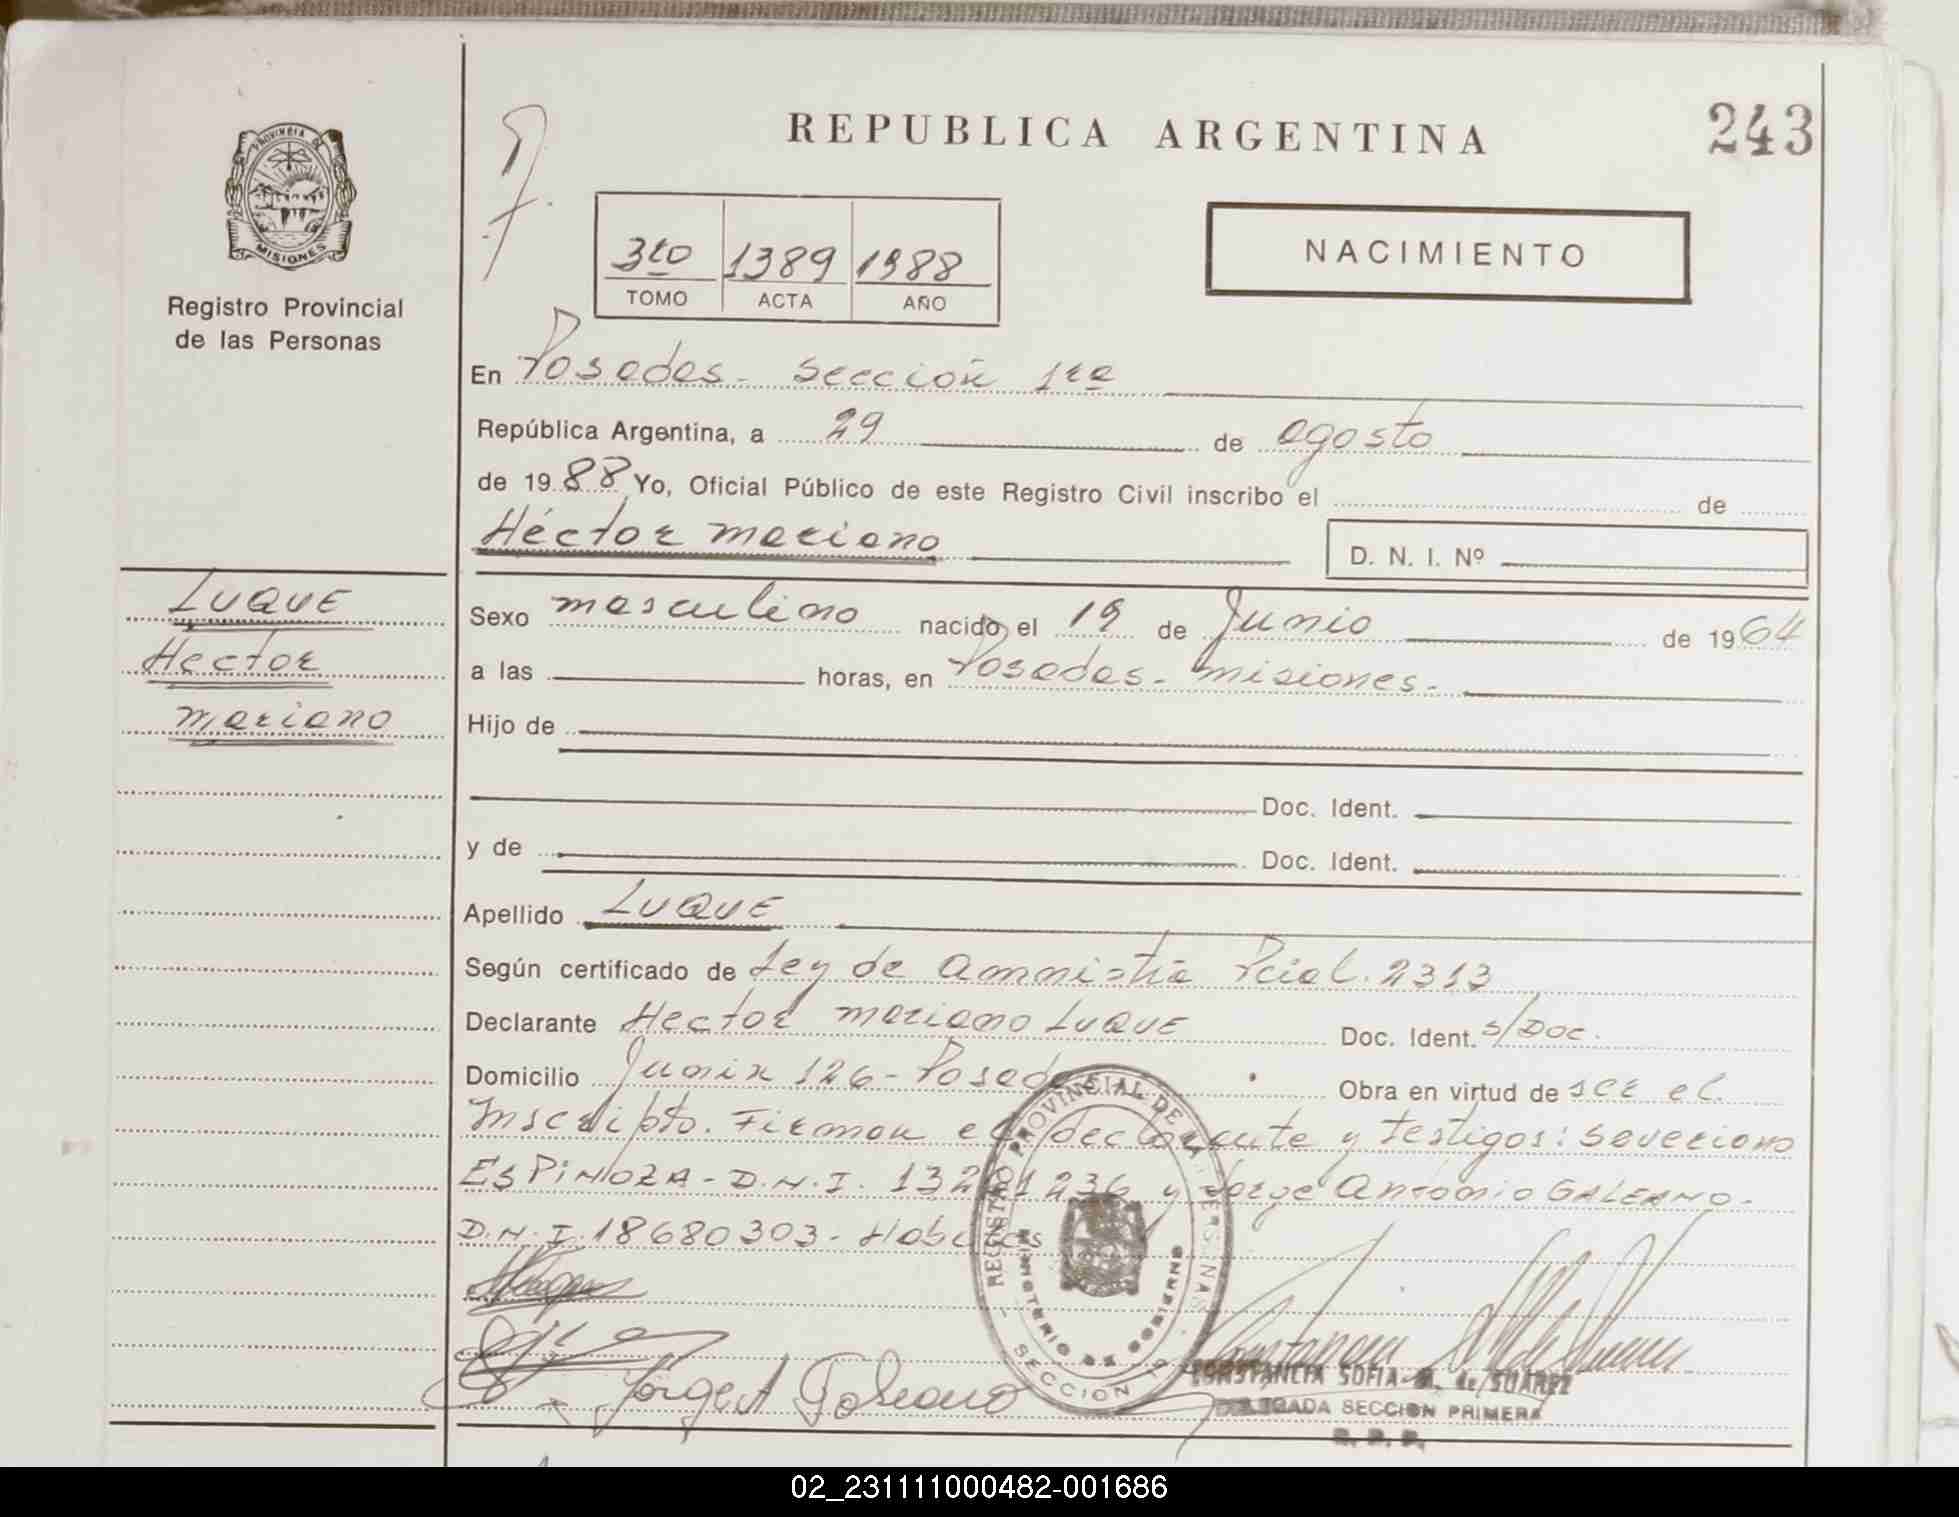 REPUBLICA ARGENTINA
243
PROVINCIA DE
MISIONES
Registro Provincial
de las Personas
3to 1389 1988
TOMO ACTA AÑO
NACIMIENTO
En Posadas - sección 1ra
República Argentina, a 29 de agosto
de 1988 Yo, Oficial Público de este Registro Civil inscribo el de
Héctor mariano D. N. I. Nº
LUQUE
Hector
mariano
Sexo masculino nacido el 19 de Junio de 1964
a las horas, en Posadas - misiones -
Hijo de
Doc. Ident.
y de Doc. Ident.
Apellido LUQUE
Según certificado de Ley de amnistía Pcial. 2313
Declarante Hector mariano LUQUE Doc. Ident. s/Doc.
Domicilio Junin 126 - Posadas Obra en virtud de ser el
Inscripto. Firman el declarante y testigos: severiano
ESPINOZA - D.N.I. 132 1236 y Jorge antonio GALEANO -
D.N.I. 18680303 - Habiles
REGISTRO PROVINCIAL DE LAS PERSONAS
MINISTERIO DE GOBIERNO
SECCION 1
Jorge A Galeano
CONSTANCIA SOFIA de SUAREZ
DELEGADA SECCION PRIMERA
R. P. P.
02_231111000482-001686